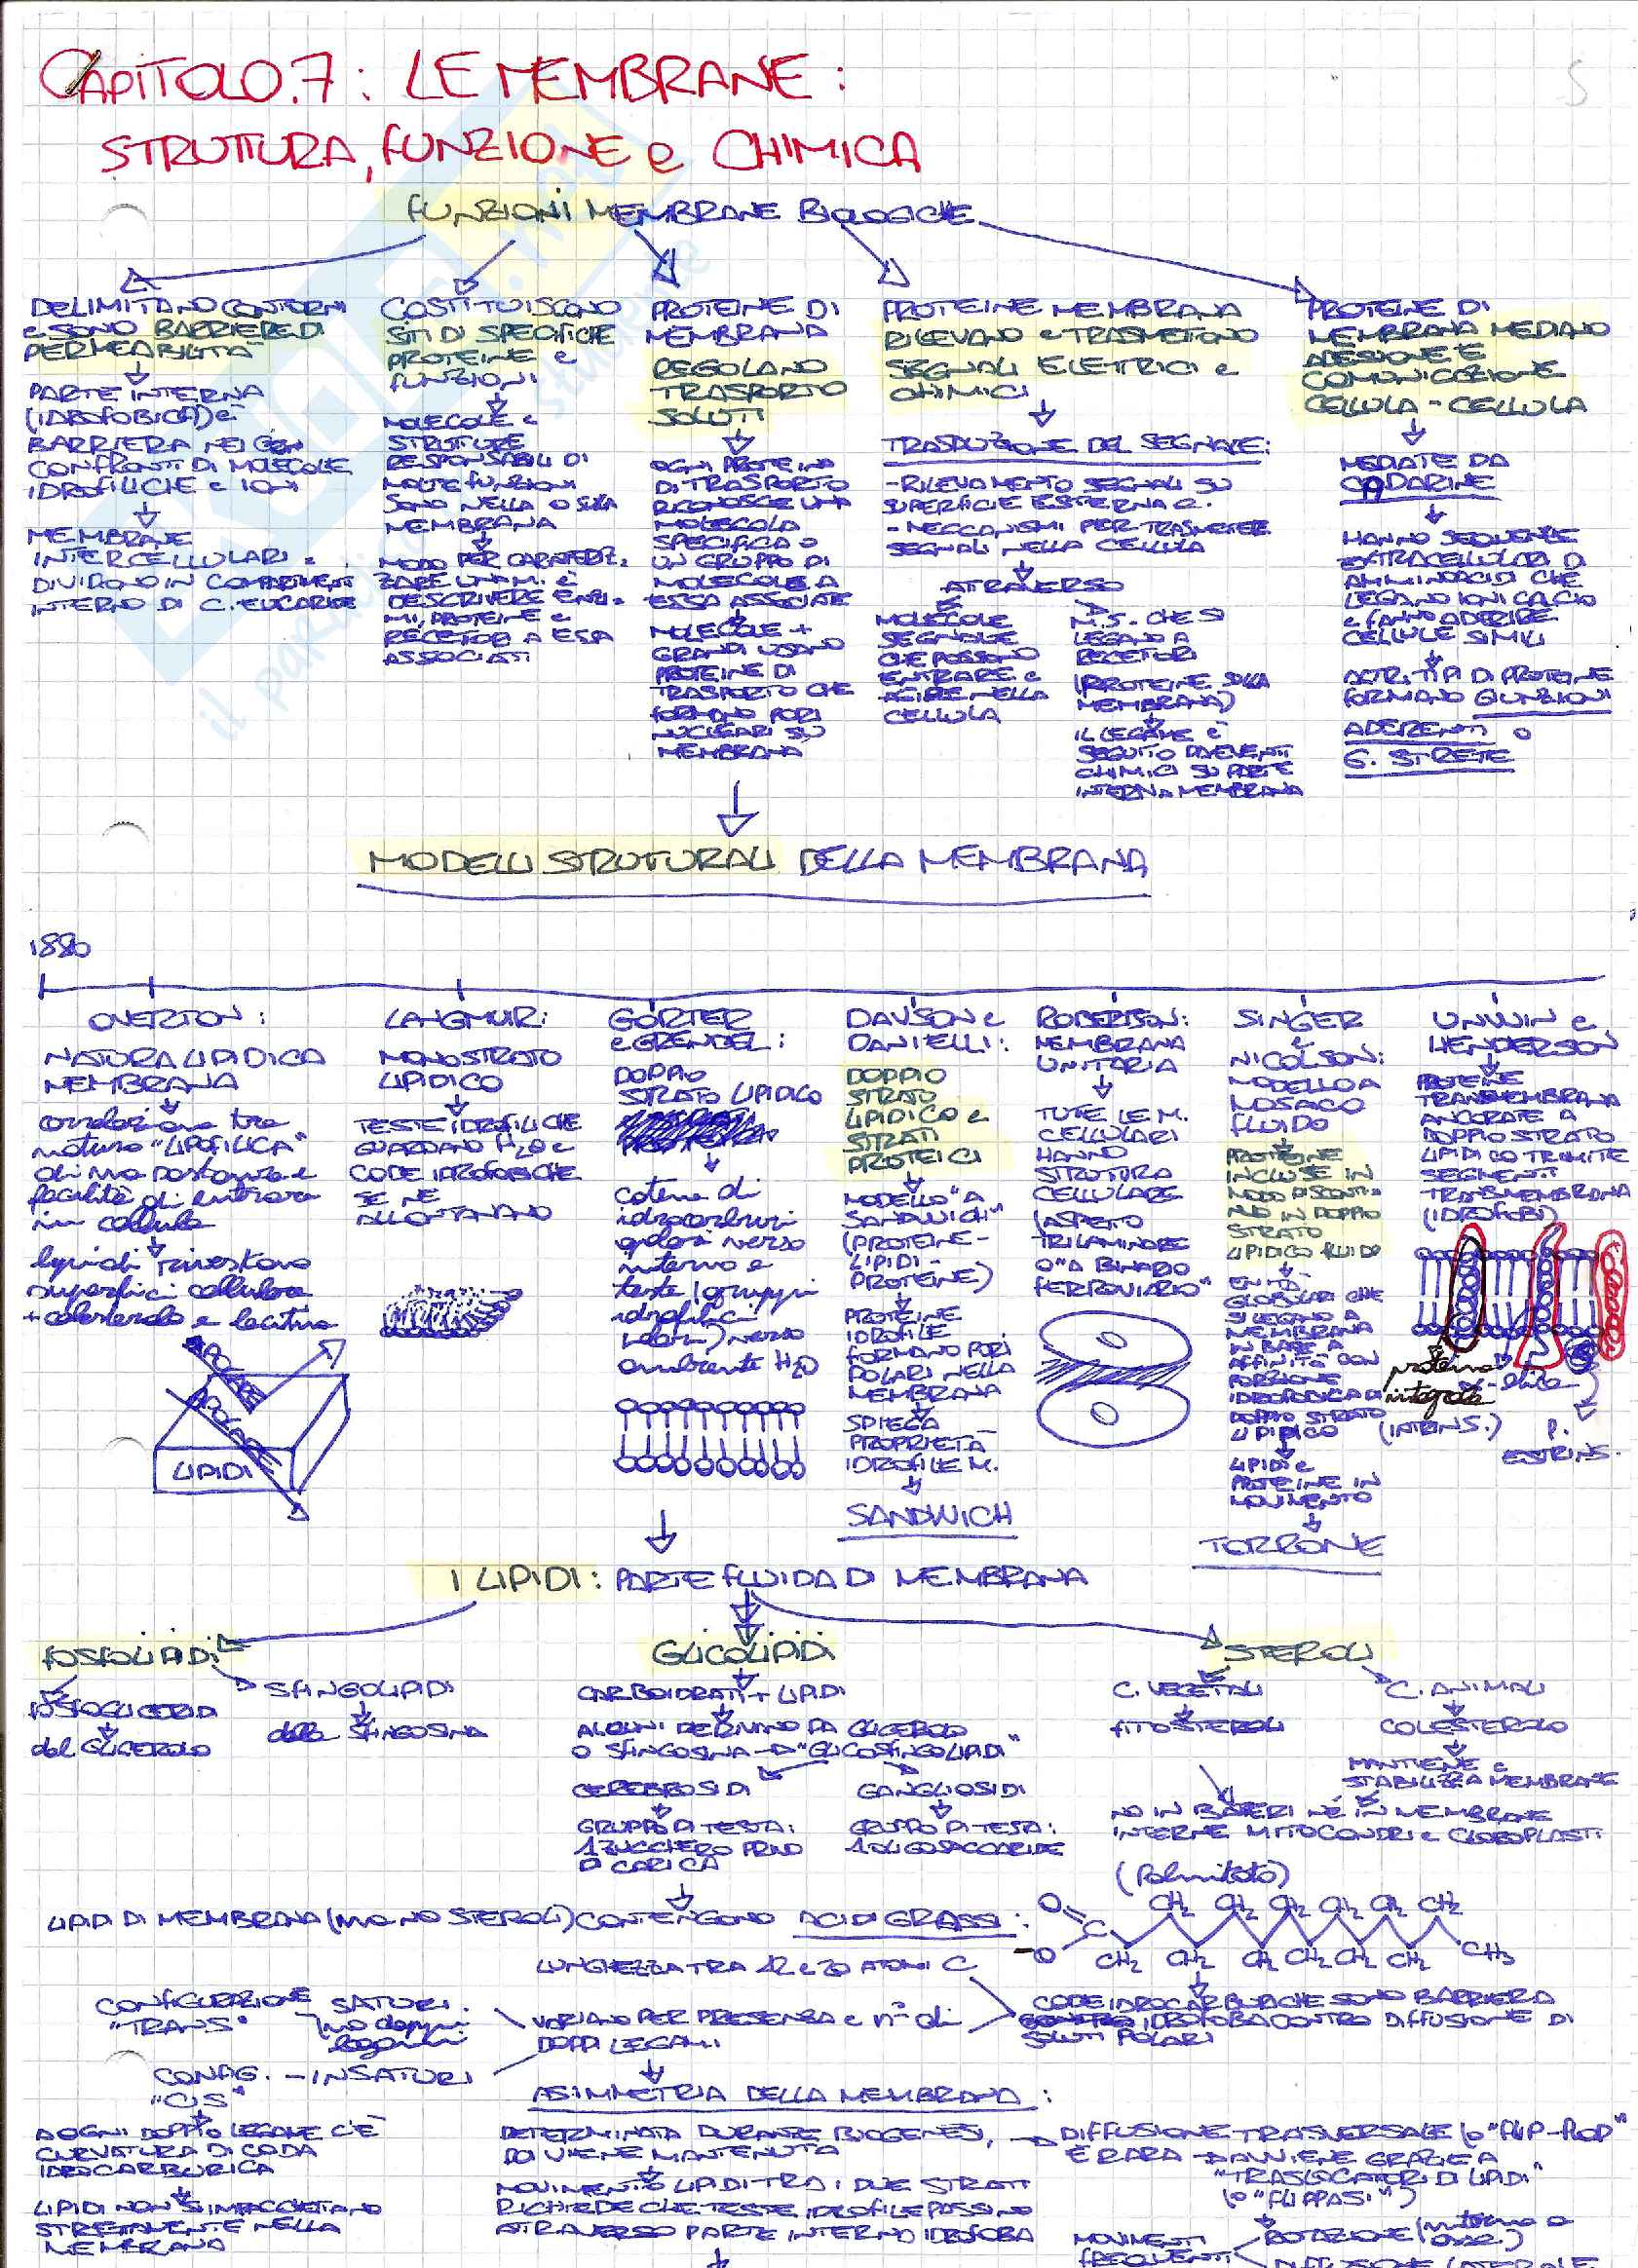 CAPITOLO.7: LE MEMBRANE:
STRUTTURA, FUNZIONE e CHIMICA
FUNZIONI MEMBRANE BIOLOGICHE
DELIMITANO CONTORNI
e SONO BARRIERE DI
PERMEABILITÀ
PARTE INTERNA
(IDROFOBICA) è
BARRIERA NEI
CONFRONTI DI MOLECOLE
IDROFILICHE e IONI
MEMBRANE
INTERCELLULARI
DIVIDONO IN COMPARTIMENTI
INTERNO DI C. EUCARIOTE
COSTITUISCONO
SITI DI SPECIFICHE
PROTEINE e
FUNZIONI
MOLECOLE e
STRUTTURE
RESPONSABILI DI
MOLTE FUNZIONI
SONO NELLA O SULLA
MEMBRANA
MODO PER CARATTERIZ-
ZARE UNA M. è
DESCRIVERE ENZI-
MI, PROTEINE e
RECETTORI A ESSA
ASSOCIATI
PROTEINE DI
MEMBRANA
REGOLANO
TRASPORTO
SOLUTI
OGNI PROTEINA
DI TRASPORTO
RICONOSCE UNA
MOLECOLA
SPECIFICA O
UN GRUPPO DI
MOLECOLE A
ESSA ASSOCIATE
MOLECOLE +
GRANDI USANO
PROTEINE DI
TRASPORTO CHE
FORMANO PORI
NUCLEARI SU
MEMBRANA
PROTEINE MEMBRANA
RILEVANO e TRASMETTONO
SEGNALI ELETTRICI e
CHIMICI
TRASDUZIONE DEL SEGNALE:
-RILEVAMENTO SEGNALI SU
SUPERFICIE ESTERNA C.
-MECCANISMI PER TRASMETTERE
SEGNALI NELLA CELLULA
ATTRAVERSO
MOLECOLE
SEGNALE
CHE POSSONO
ENTRARE e
AGIRE NELLA
CELLULA
M.S. CHE SI
LEGANO A
RECETTORI
(PROTEINE SULLA
MEMBRANA)
IL LEGAME è
SEGUITO DA EVENTI
CHIMICI SU PARTE
INTERNA MEMBRANA
PROTEINE DI
MEMBRANA MEDIANO
ADESIONE E
COMUNICAZIONE
CELLULA-CELLULA
MEDIATE DA
CADERINE
HANNO SEQUENZE
EXTRACELLULARI DI
AMMINOACIDI CHE
LEGANO IONI CALCIO
e FANNO ADERIRE
CELLULE SIMILI
ALTRI TIPI DI PROTEINE
FORMANO GIUNZIONI
ADERENTI O
G. STRETTE
MODELLI STRUTTURALI DELLA MEMBRANA
1880
OVERTON:
NATURA LIPIDICA
MEMBRANA
correlazione tra
natura "LIPOFILICA"
di una sostanza e
facilità di entrare
in cellula
lipidi rivestono
superfici cellulare
+ colesterolo e lecitina
LIPIDI
LANGMUIR:
MONOSTRATO
LIPIDICO
TESTE IDROFILICHE
GUARDANO H2O e
CODE IDROFOBICHE
SE NE
ALLONTANANO
GORTER
e GRENDEL:
DOPPIO
STRATO LIPIDICO
catene di
idrocarburi
apolari verso
interno e
teste (gruppi
idrofilici
polari) verso
ambiente H2O
DAVSON e
DANIELLI:
DOPPIO
STRATO
LIPIDICO e
STRATI
PROTEICI
MODELLO "A
SANDWICH"
(PROTEINE-
LIPIDI-
PROTEINE)
PROTEINE
IDROFILE
FORMANO PORI
POLARI NELLA
MEMBRANA
SPIEGA
PROPRIETÀ
IDROFILE M.
SANDWICH
ROBERTSON:
MEMBRANA
UNITARIA
TUTTE LE M.
CELLULARI
HANNO
STRUTTURA
CELLULARE
(ASPETTO
TRILAMINARE
O "A BINARIO
FERROVIARIO"
SINGER
e
NICOLSON:
MODELLO A
MOSAICO
FLUIDO
PROTEINE
INCLUSE IN
MODO DISCONTI-
NUO IN DOPPIO
STRATO
LIPIDICO FLUIDO
ENTITÀ
GLOBULARI CHE
SI LEGANO A
MEMBRANA
IN BASE A
AFFINITÀ CON
PORZIONE
IDROFOBICA DI
DOPPIO STRATO
LIPIDICO
LIPIDI e
PROTEINE IN
MOVIMENTO
TORRONE
UNWIN e
HENDERSON
PROTEINE
TRANSMEMBRANA
ANCORATE A
DOPPIO STRATO
LIPIDICO TRAMITE
SEGMENTI
TRANSMEMBRANA
(IDROFOBI)
proteina
integrale
(INTRINS.)
α-elica
P.
ESTRINS.
I LIPIDI: PARTE FLUIDA DI MEMBRANA
FOSFOLIPIDI
FOSFOGLICERIDI
dal GLICEROLO
SFINGOLIPIDI
dalla SFINGOSINA
GLICOLIPIDI
CARBOIDRATI + LIPIDI
ALCUNI DERIVANO DA GLICEROLO
O SFINGOSINA → "GLICOSFINGOLIPIDI"
CEREBROSIDI
GRUPPO DI TESTA:
1 ZUCCHERO PRIVO
DI CARICA
GANGLIOSIDI
GRUPPO DI TESTA:
1 OLIGOSACCARIDE
STEROLI
C. VEGETALI
FITOSTEROLI
C. ANIMALI
COLESTEROLO
MANTIENE e
STABILIZZA MEMBRANE
NO IN BATTERI NÉ IN MEMBRANE
INTERNE MITOCONDRI e CLOROPLASTI
LIPIDI DI MEMBRANA (ma NO STEROLI) CONTENGONO ACIDI GRASSI:
(Palmitato)
O C -O CH2 CH2 CH2 CH2 CH2 CH2
CH2 CH2 CH2 CH2 CH2 CH2 CH3
LUNGHEZZA TRA 12 e 20 ATOMI C
VARIANO PER PRESENZA e n° di
DOPPI LEGAMI
CODE IDROCARBURICHE SONO BARRIERA
IDROFOBA CONTRO DIFFUSIONE DI
SOLUTI POLARI
CONFIGURAZIONE
"TRANS"
SATURI.
no doppi
legami
CONFIG. - INSATURI
"CIS"
A OGNI DOPPIO LEGAME C'È
CURVATURA DI CODA
IDROCARBURICA
LIPIDI NON SI IMPACCHETTANO
STRETTAMENTE NELLA
MEMBRANA
ASIMMETRIA DELLA MEMBRANA:
DETERMINATA DURANTE BIOGENESI,
POI VIENE MANTENUTA
MOVIMENTO LIPIDI TRA I DUE STRATI
RICHIEDE CHE TESTE IDROFILE PASSINO
ATTRAVERSO PARTE INTERNA IDROFOBA
DIFFUSIONE TRASVERSALE (o "FLIP-FLOP"
È RARA → AVVIENE GRAZIE A
"TRASLOCATORI DI LIPIDI"
(o "FLIPPASI")
MOVIMENTI
FREQUENTI
ROTAZIONE (intorno a
asse)
DIFFUSIONE LATERALE